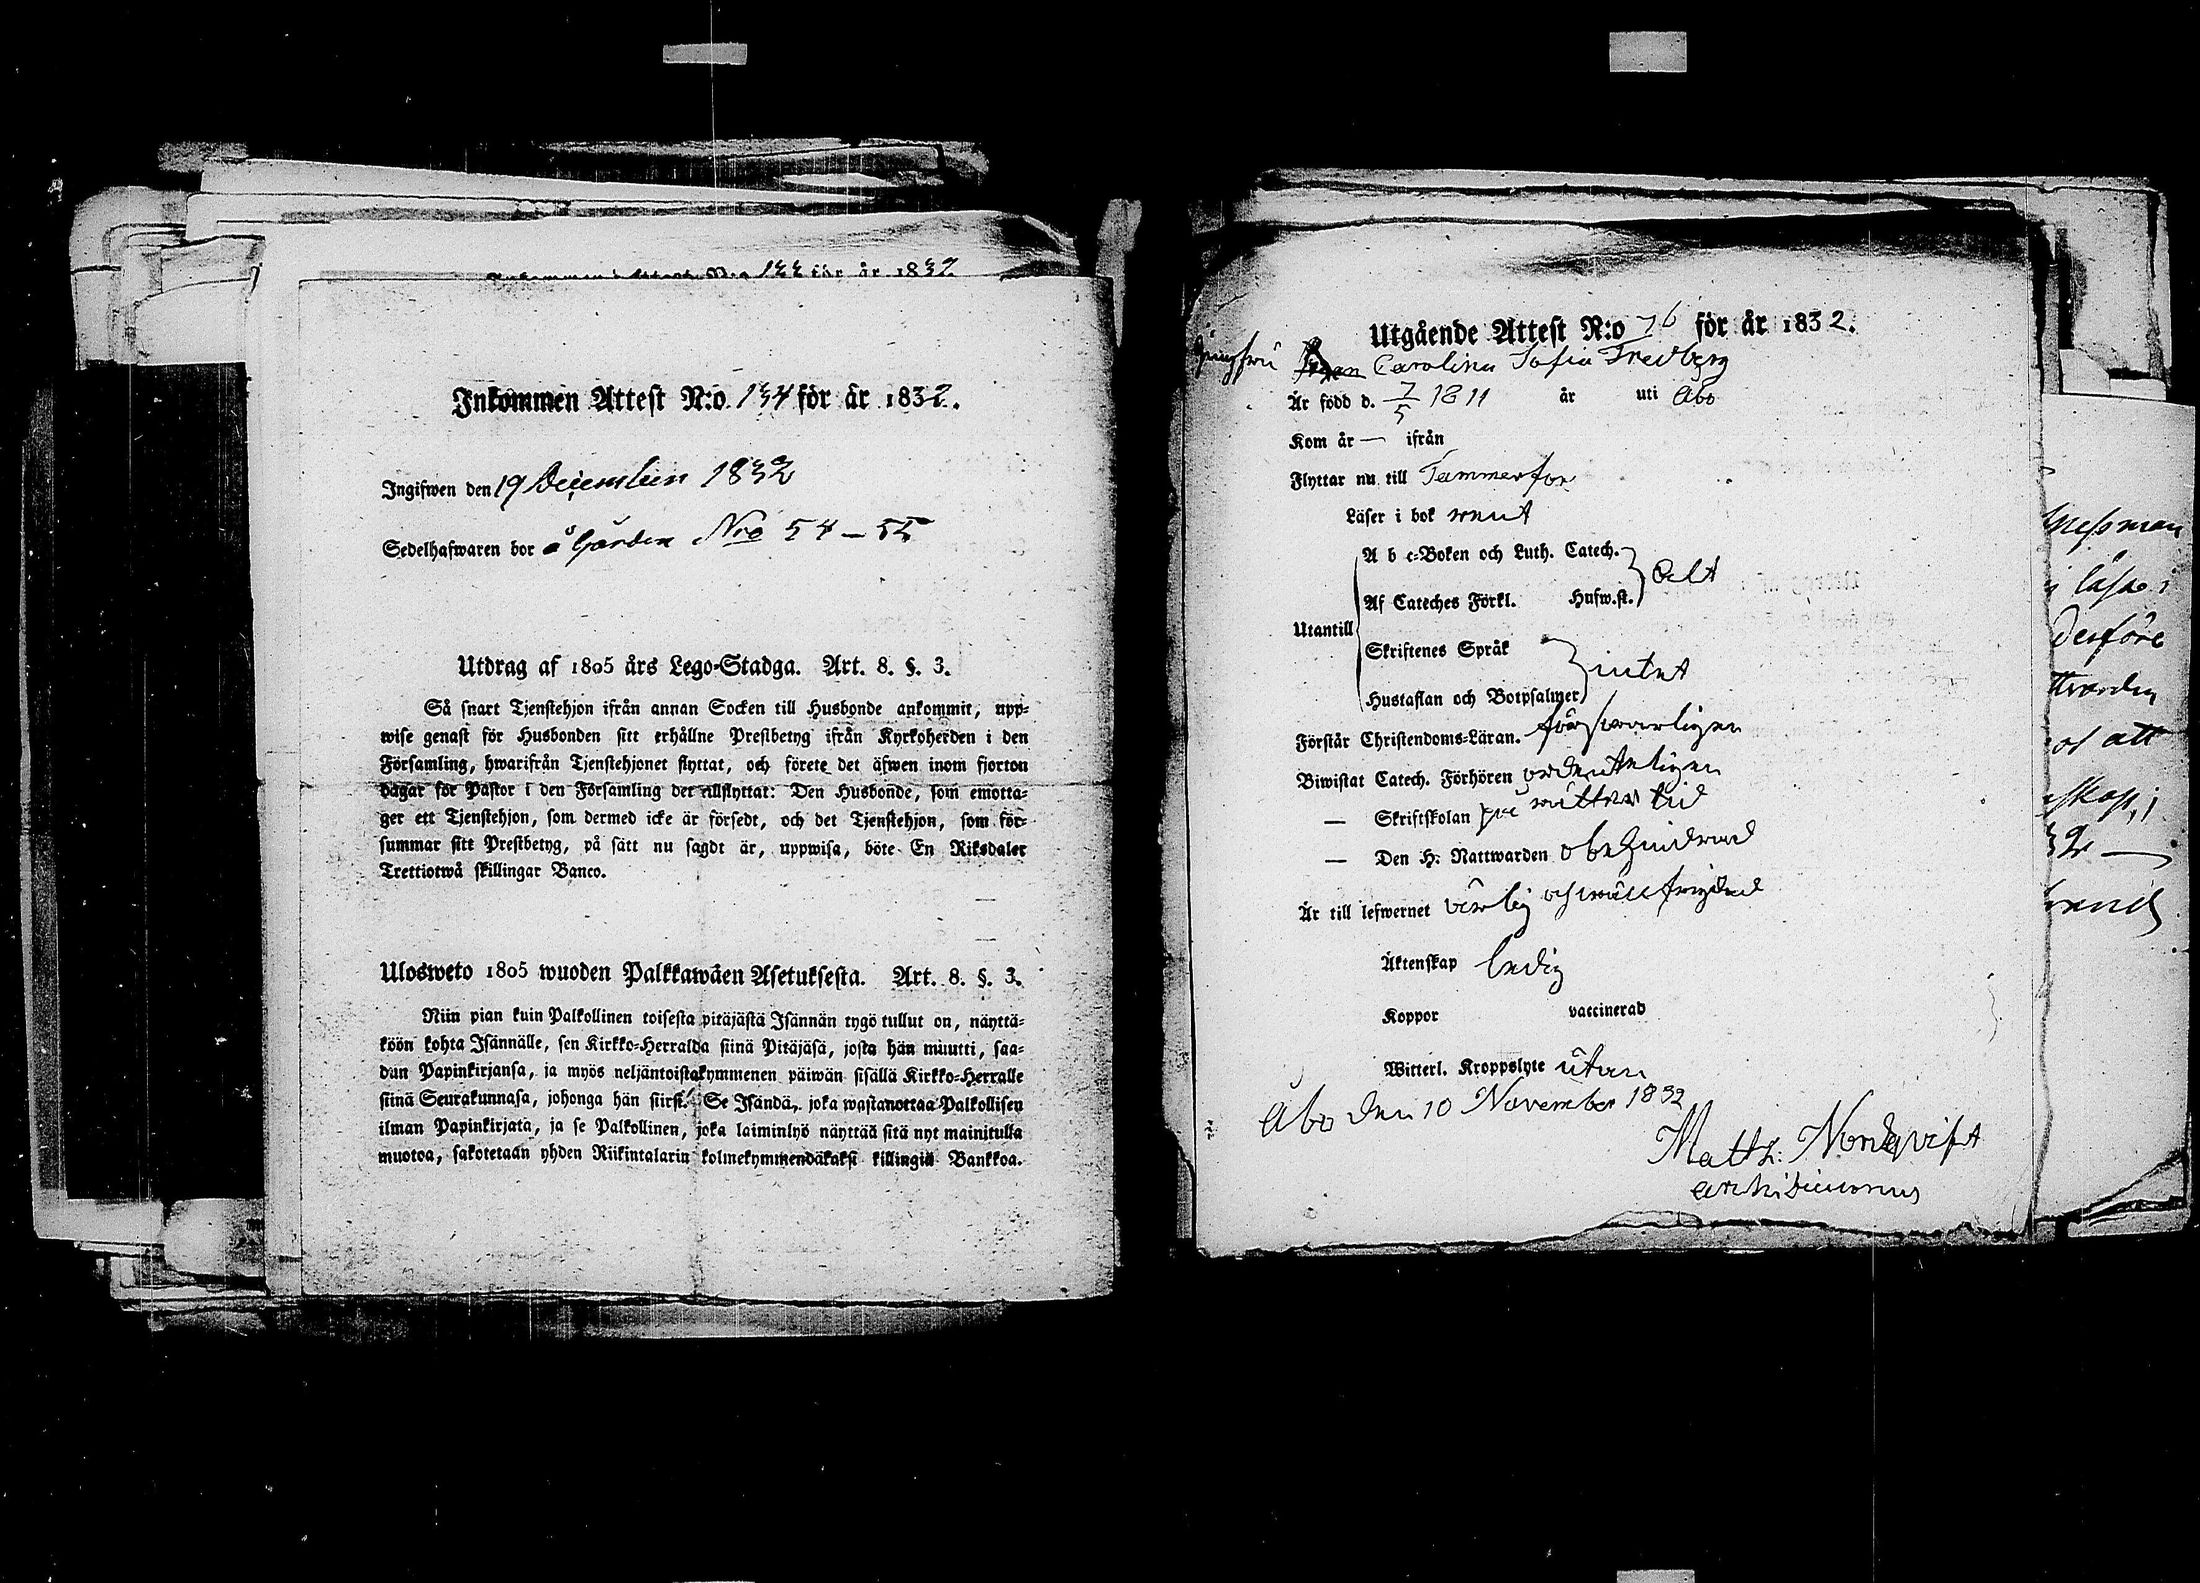 Inkommen Attest N:o 133 för år 1832
Inkommen Attest N:o 134 för år 1832.
Ingifwen den 19 December 1832
Sedelhafwaren bor å Gården Nro 54-55
Utdrag af 1805 års Lego-Stadga. Art. 8. §. 3.
Så snart Tjenstehjon ifrån annan Socken till Husbonde ankommit, upp-
wise genast för Husbonden sitt erhållne Prestbetyg ifrån Kyrkoherden i den
Församling, hwarifrån Tjenstehjonet flyttat, och förete det äfwen inom fjorton
dagar för Pastor i den Församling det tillflyttat: Den Husbonde, som emotta-
ger ett Tjenstehjon, som dermed icke är försedt, och det Tjenstehjon, som för-
summar sitt Prestbetyg, på sätt nu sagdt är, uppwisa, böte En Riksdaler
Trettiotwå skillingar Banco.
Ulosweto 1805 wuoden Palkkawäen Asetuksesta. Art. 8. §. 3.
Niin pian kuin Palkollinen toisesta pitäjästä Isännän tygö tullut on, näyttä-
köön kohta Isännälle, sen Kirkko-Herralda siinä Pitäjäsä, josta hän muutti, saa-
dun Papinkirjansa, ja myös neljäntoistakymmenen päiwän sisällä Kirkko-Herralle
siinä Seurakunnasa, johonga hän siirsi. Se Isändä, joka wastanottaa Palkollisen
ilman Papinkirjata, ja se Palkollinen, joka laiminlyö näyttää sitä nyt mainitulla
muotoa, sakotetaan yhden Riikintalarin kolmekymmendäkaksi killingiä Bankkoa.
Utgående Attest N:o 76 för år 1832.
Jungfru Carolina Sofia Fredberg
Är född d. 7/5 1811 år uti Åbo
Kom år — ifrån
Flyttar nu till Tammerfors
Läser i bok rent
A b c-Boken och Luth. Catech.
Af Cateches Förkl. Hufw.st. Allt
Utantill
Skriftenes Språk
Hustaflan och Botpsalmer intet
Förstår Christendoms-Läran. försvarligen
Biwistat Catech. Förhören ordenteligen
— Skriftskolan på rättan tid
— Den H. Nattwarden obehindrad
Är till lefwernet ärlig och wälfrejdad
Äktenskap ledig
Koppor vaccinerad
Witterl. Kroppslyte utan
Åbo den 10 November 1832
Matth: Nordqvist
archidiaconus
läsa i
derföre
att